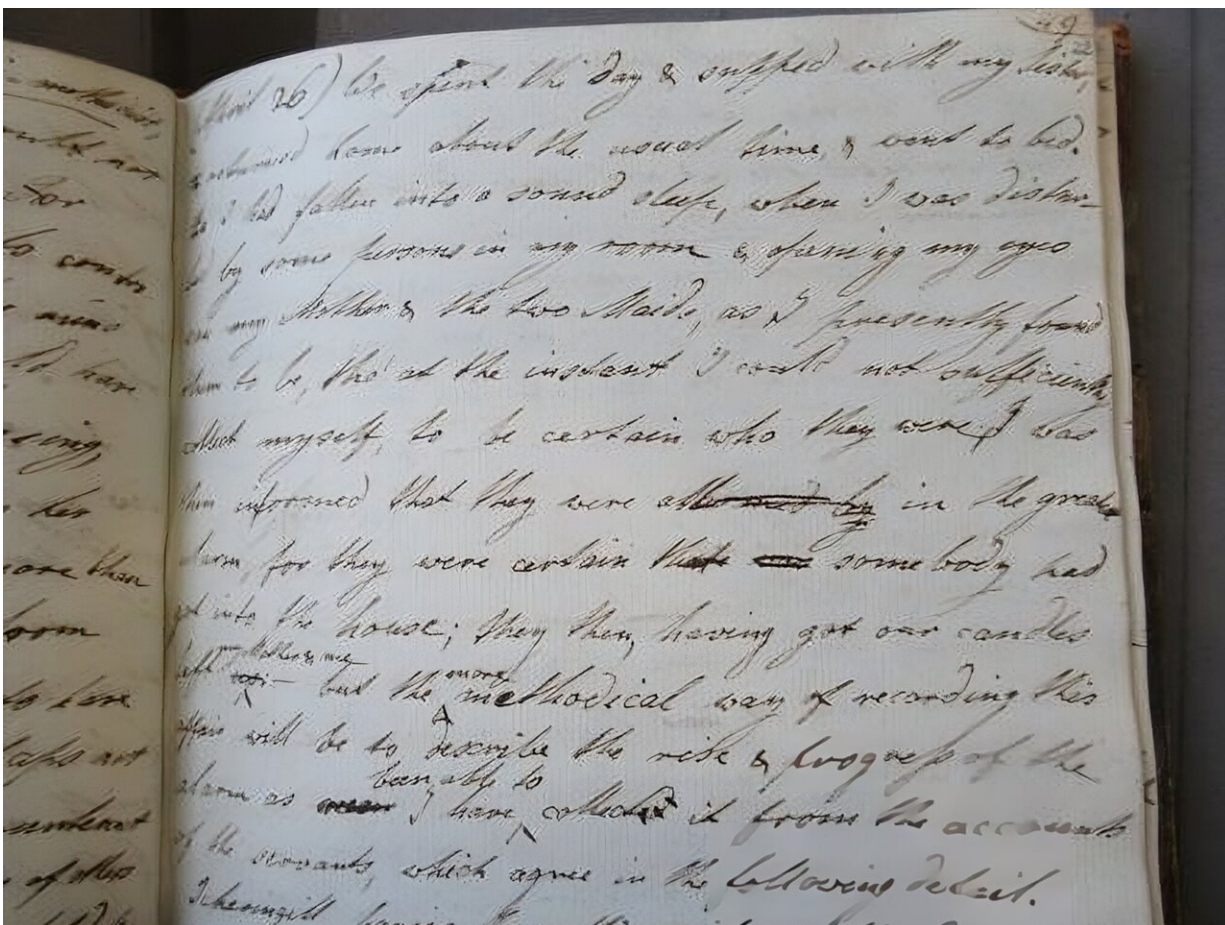 49
April 26) We spent the Day & supped with my Sister,
returned home about the usual time, & went to bed.
I had fallen into a sound sleep, when I was distur-
by some persons in my room & opening my eyes
my Mother & the two Maids, as I presently found
them to be, tho' at the instant I could not sufficiently
collect myself, to be certain who they were, I was
then informed that they were by in the greate
alarm, for they were certain that somebody had
got into the house; they then, having got our candles
left Mother & me but the more methodical way of recording this
affair will be to describe the rise & progress of the
alarm as I have been able to collected it from the accounts
of the servants, which agree in the following detail.
methodist,
not
for
to
have
her
more than
room
to have
not
of